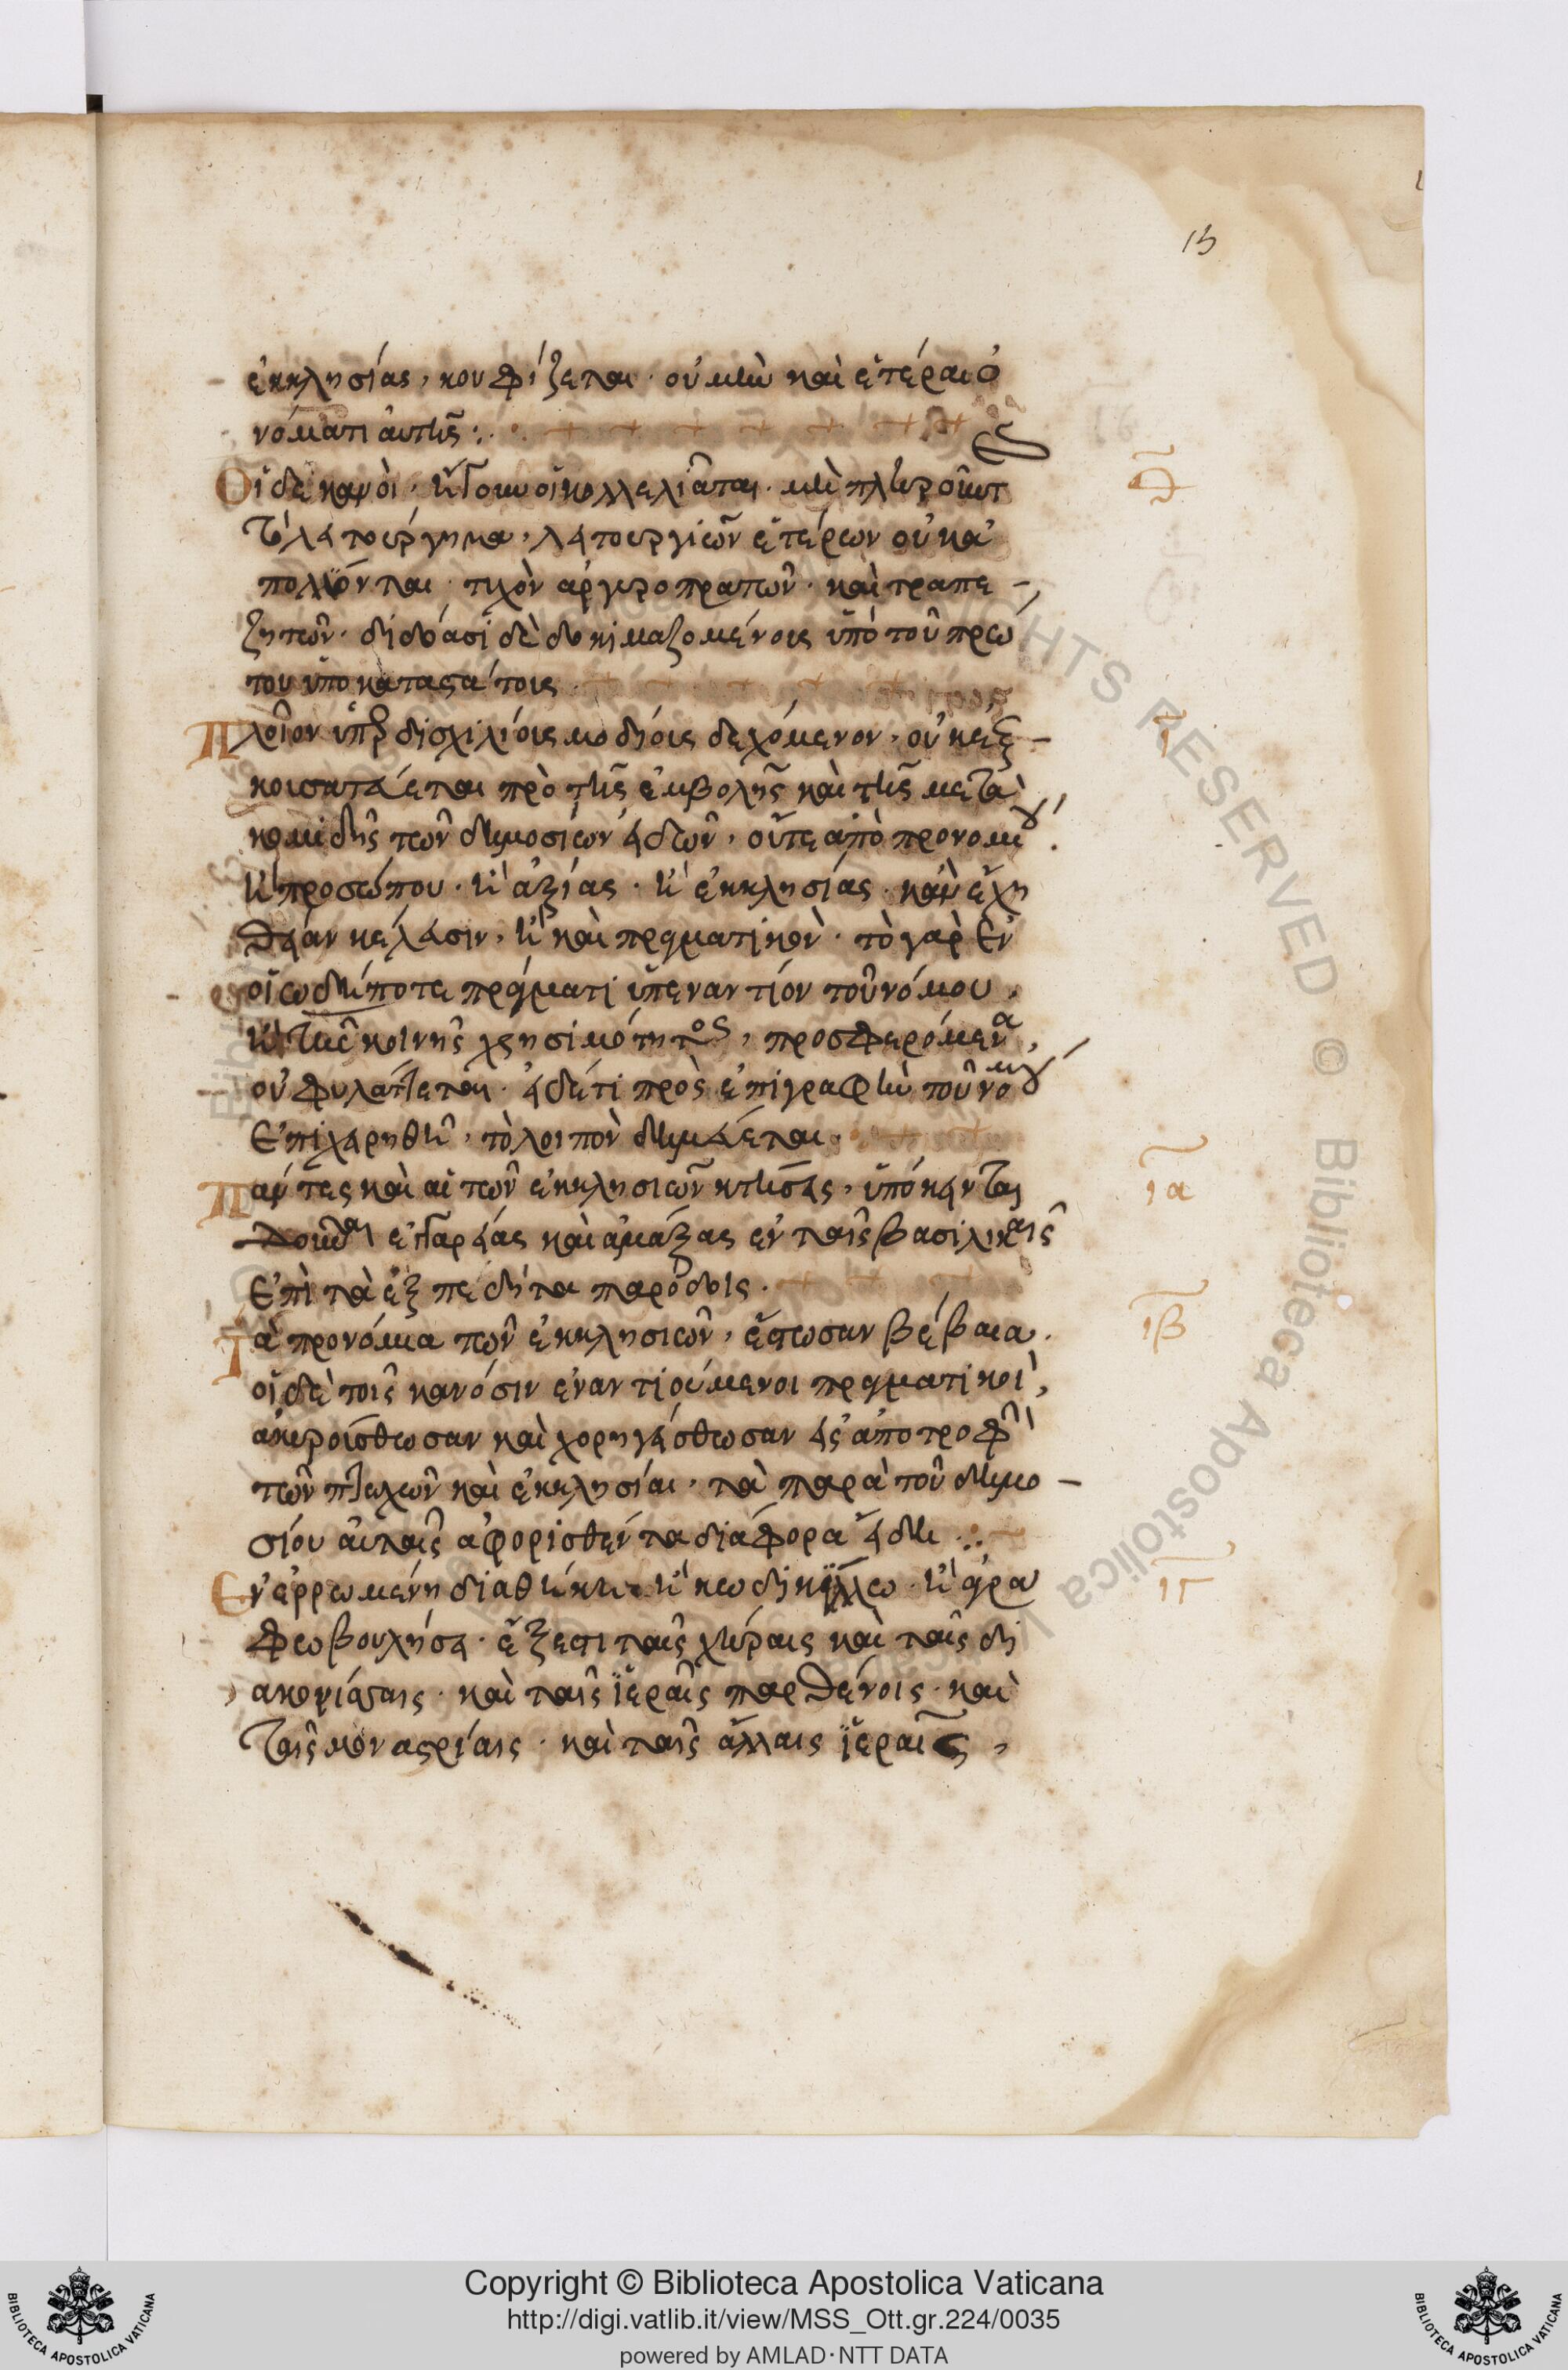 13
ἐκκλησίας, κουφίζεται· οὐ μὴν καὶ ἑτέραι ὀ
νόματι αὐτῆς :·
Οἱ δεκανοὶ, ἤγουν οἱ κολλεγιᾶται· μὴ πληροῦντες
τὸ λειτούργημα, λειτουργιῶν ἑτέρων οὐκ ἀ
πολύονται· τυχὸν ἀργυροπρατῶν· καὶ τραπε
ζητῶν· διδόασι δὲ δοκιμαζομένοις ὑπὸ τοῦ πρώ
του ὑποκαταστάτοις
Πλοῖον ὑπὲρ δισχιλίοις μοδίοις δεχόμενον, οὐκ ἐξ
κουσατεύεται πρὸ τῆς ἐμβολῆς καὶ τῆς μετα
κομιδῆς τῶν δημοσίων εἰδῶν, οὔτε ἀπὸ προνομίου·
ἢ προσώπου· ἢ ἀξίας· ἢ ἐκκλησίας· κἂν ἔχη
θείαν κέλευσιν, ἢ καὶ πραγματικὸν· τὸ γὰρ ἐν
οἱωδήποτε πράγματι ὑπεναντίον τοῦ νόμου,
ἢ τῆς κοινῆς χρησιμότητος, προσφερόμενα,
οὐ φυλάττεται· εἰ δέ τι πρὸς ἐπιγραφὴν τοῦ νόμου
ἐπιχειρηθῆ, τὸ λοιπὸν δημεύεται·
Πάντες καὶ αἱ τῶν ἐκκλησιῶν κτήσεις, ὑπόκεινται
δοῦναι ἐπαρείας καὶ ἁμάξας ἐν ταῖς βασιλικαῖς
ἐπὶ τὰ ἐξπέδιτα παρόδοις·
Τὰ προνόμια τῶν ἐκκλησιῶν, ἔστωσαν βέβαια·
οἱ δὲ τοῖς κανόσιν ἐναντιούμενοι πραγματικοὶ,
ἀκυρούσθωσαν καὶ χορηγείσθωσαν εἰς ἀποτροφὴν
τῶν πτωχῶν καὶ ἐκκλησίαι, τὰ παρὰ τοῦ δημο
σίου αὐταῖς ἀφορισθέντα διάφορα εἴδη :·
Ἐν ἐρρωμένη διαθήκη· ἢ κωδικίλλω· ἢ ἀγρα
φωβουλήσει· ἔξεστι ταῖς χήραις καὶ ταῖς δι
ακονίσσαις· καὶ ταῖς ἱεραῖς παρθένοις· καὶ
ταῖς μοναστρίαις· καὶ ταῖς ἄλλαις ἱεραῖς,
θ
ι
ια
ιβ
ιγ
RIGHTS RESERVED © Biblioteca Apostolica
Copyright © Biblioteca Apostolica Vaticana
http://digi.vatlib.it/view/MSS_Ott.gr.224/0035
powered by AMLAD·NTT DATA
BIBLIOTECA APOSTOLICA VATICANA
BIBLIOTECA APOSTOLICA VATICANA